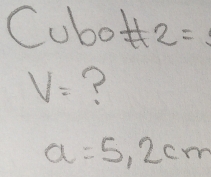 Cubo#2=
V=?
a=5,2cm